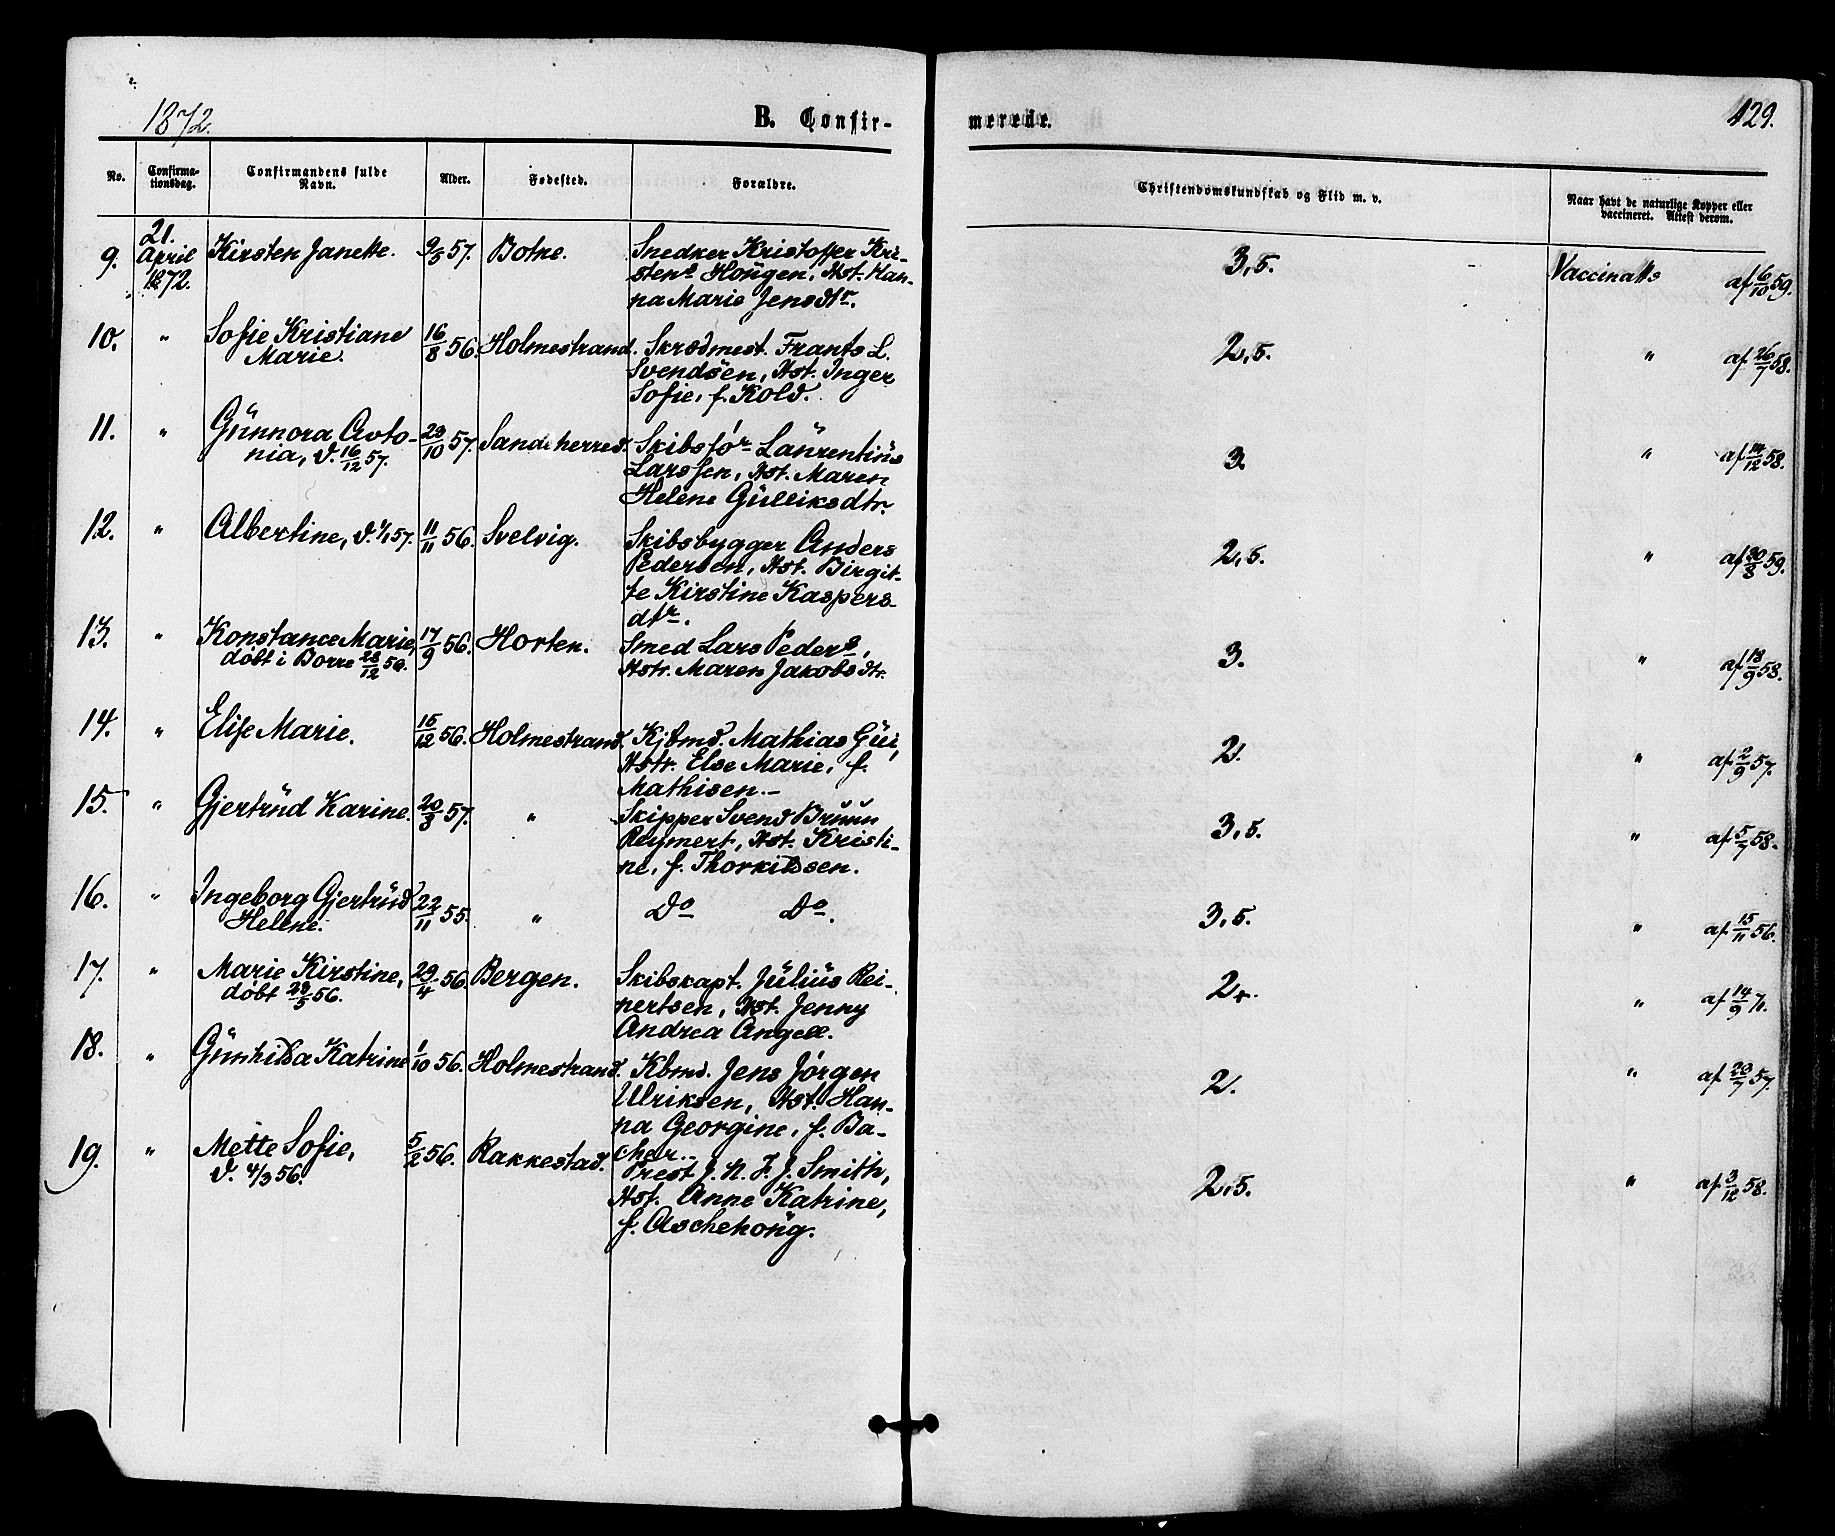 1872.
B. Confir-
merede.
129.
No.
Confirma-
tionsdag.
Confirmandens fulde
Navn.
Alder.
Fødested.
Forældre.
Christendomskundskab og Flid m. v.
Naar havt de naturlige Kopper eller
vaccineret. Attest derom.
9. 21. April 1872. Kirsten Janette. 9/5 57. Botne. Snedker Kristoffer Kri-
stens Hougen, Hst. Han-
na Marie Jensdtr.
3,5. Vaccinatts af 6/10 59.
10. " Sofie Kristiane
Marie. 16/8 56. Holmestrand. Skrædmest. Frants L.
Svendsen, Hst. Inger
Sofie, f. Kold.
2,5. " af 26/7 58.
11. " Günnora Avto-
nia, d. 16/12 57. 23/10 57. Sandeherred. Skibsför Laürentiüs
Larssen, Hst. Maren
Helene Gülliksdtr.
3. " af 14/12 58.
12. " Albertine, d. 1/1 57. 11/11 56. Svelvig. Skibsbygger Anders
Pedersen, Hst. Birgit-
te Kirstine Kaspers-
dtr.
2,5. " af 30/8 59.
13. " Konstance Marie,
døbt i Borre 28/12 56. 17/9 56. Horten. Smed Lars Peders,
Hstr. Maren Jakobsdtr.
3. " af 18/9 58.
14. " Elise Marie. 15/12 56. Holmestrand. Kjbmd. Mathias Güi,
Hstr. Else Marie, f.
Mathisen.-
2. " af 2/9 57.
15. " Gjertrüd Karine. 20/8 57. " Skipper Svend Bruun
Reymert, Hst. Kristi-
ne, f. Thorkildsen.
3,5. " af 5/7 58.
16. " Ingeborg Gjertrüd
Helene. 22/11 55. " Do Do.
3,5. " af 15/11 56.
17. " Marie Kirstine,
døbt 28/5 56. 29/4 56. Bergen. Skibskapt. Jüliüs Rei-
nertsen, Hst. Jenny
Andrea Angell.
2+. " af 14/9 71.
18. " Günhilda Katrine 1/10 56. Holmestrand. Kbmd. Jens Jørgen
Ulriksen, Hst. Han-
na Georgine, f. Ba-
cher..
2. " af 29/7 57.
19. " Mette Sofie,
d. 4/3 56. 5/2 56. Rakkestad. Prest J. N. F. J. Smith,
Hst. Anne Katrine,
f. Aschehoüg.
2,5. " af 3/12 58.